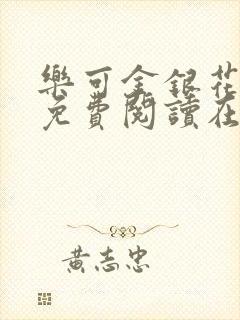 樂可金銀花
免費閱讀在
黃志忠